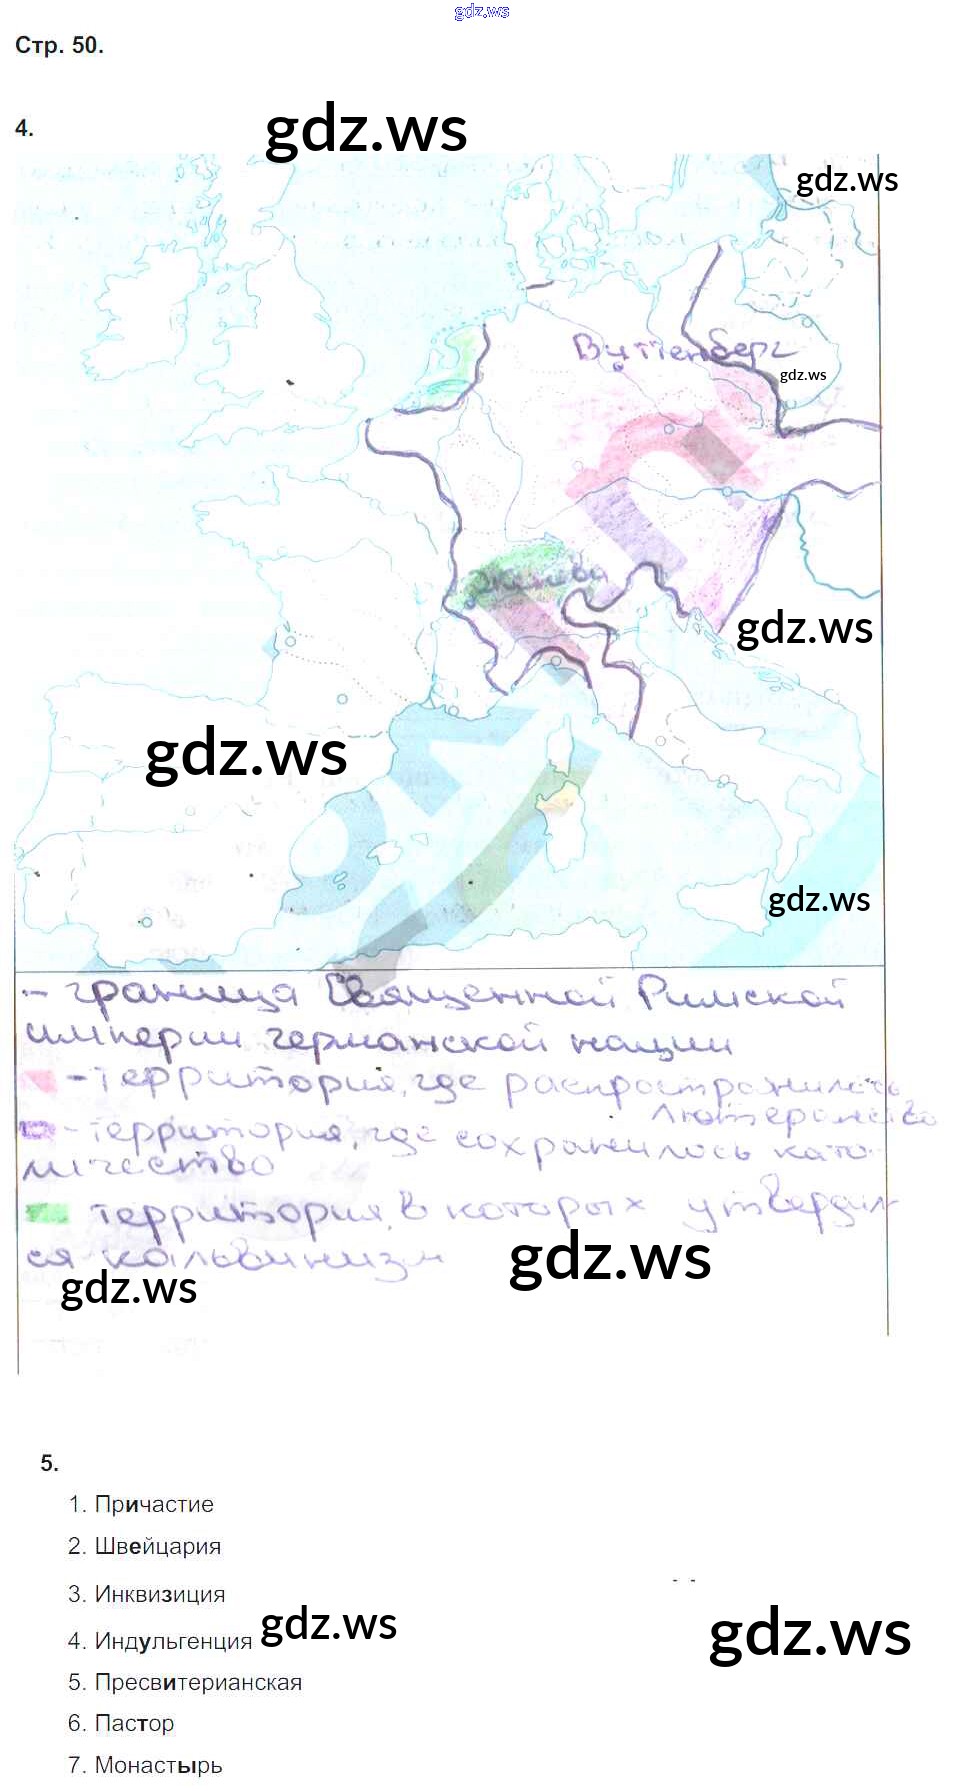 gdz.ws
Стр. 50.
4.
gdz.ws
gdz.ws
Виттенберг
gdz.ws
Женева
gdz.ws
gdz.ws
gdz.ws
- граница Священной Римской
империи германской нации
- территория, где распространилось
лютеранство
- территория, где сохранилось като-
личество
территория, в которых утвердил
ся кальвинизм
gdz.ws
gdz.ws
5.
1. Причастие
2. Швейцария
3. Инквизиция
4. Индульгенция
gdz.ws
gdz.ws
5. Пресвитерианская
6. Пастор
7. Монастырь